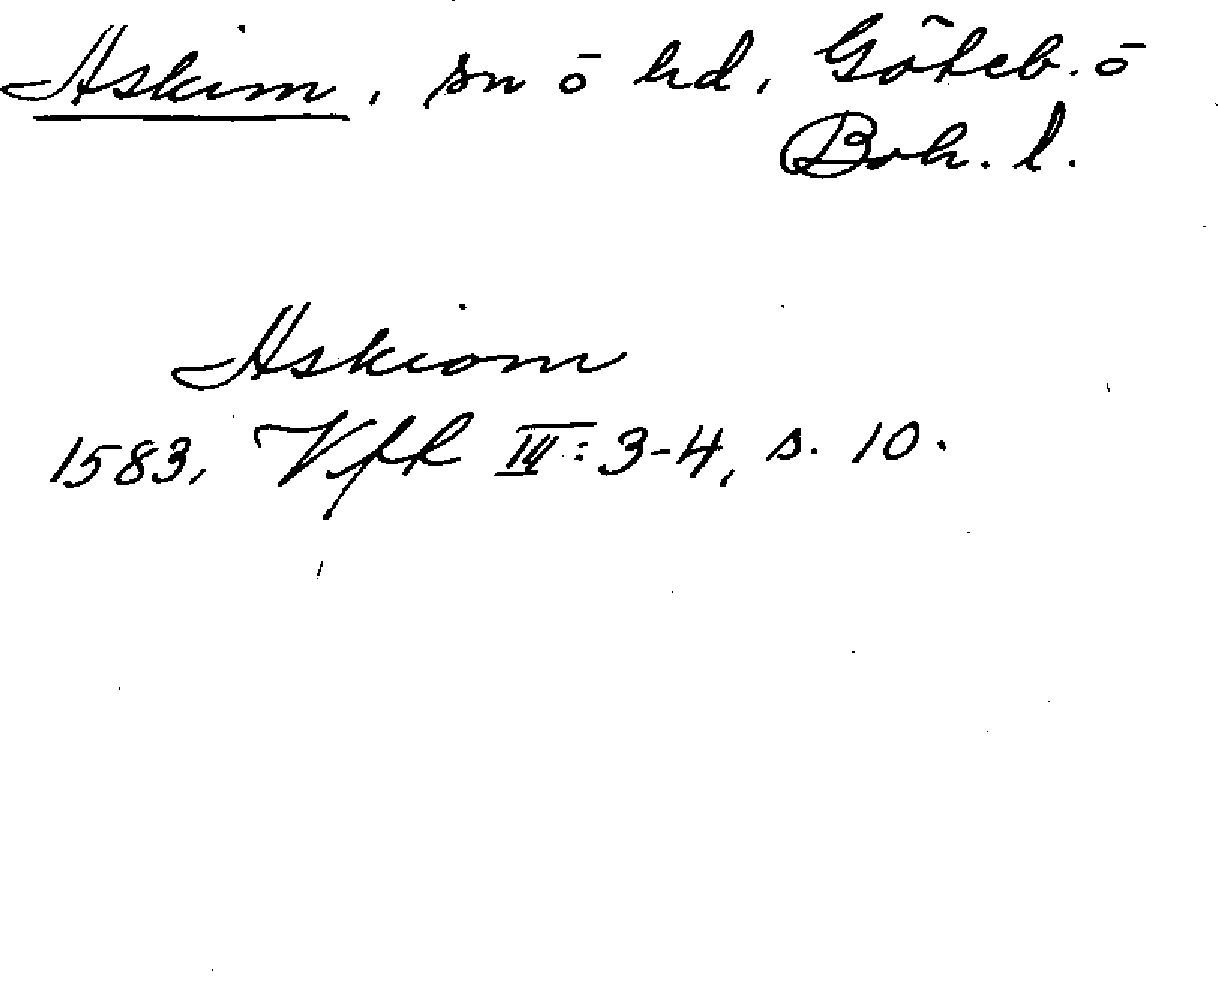 Askim, sn ō hd, Göteb. ō
Boh. l.
Askiom
1583, VfR III: 3-4, s. 10.